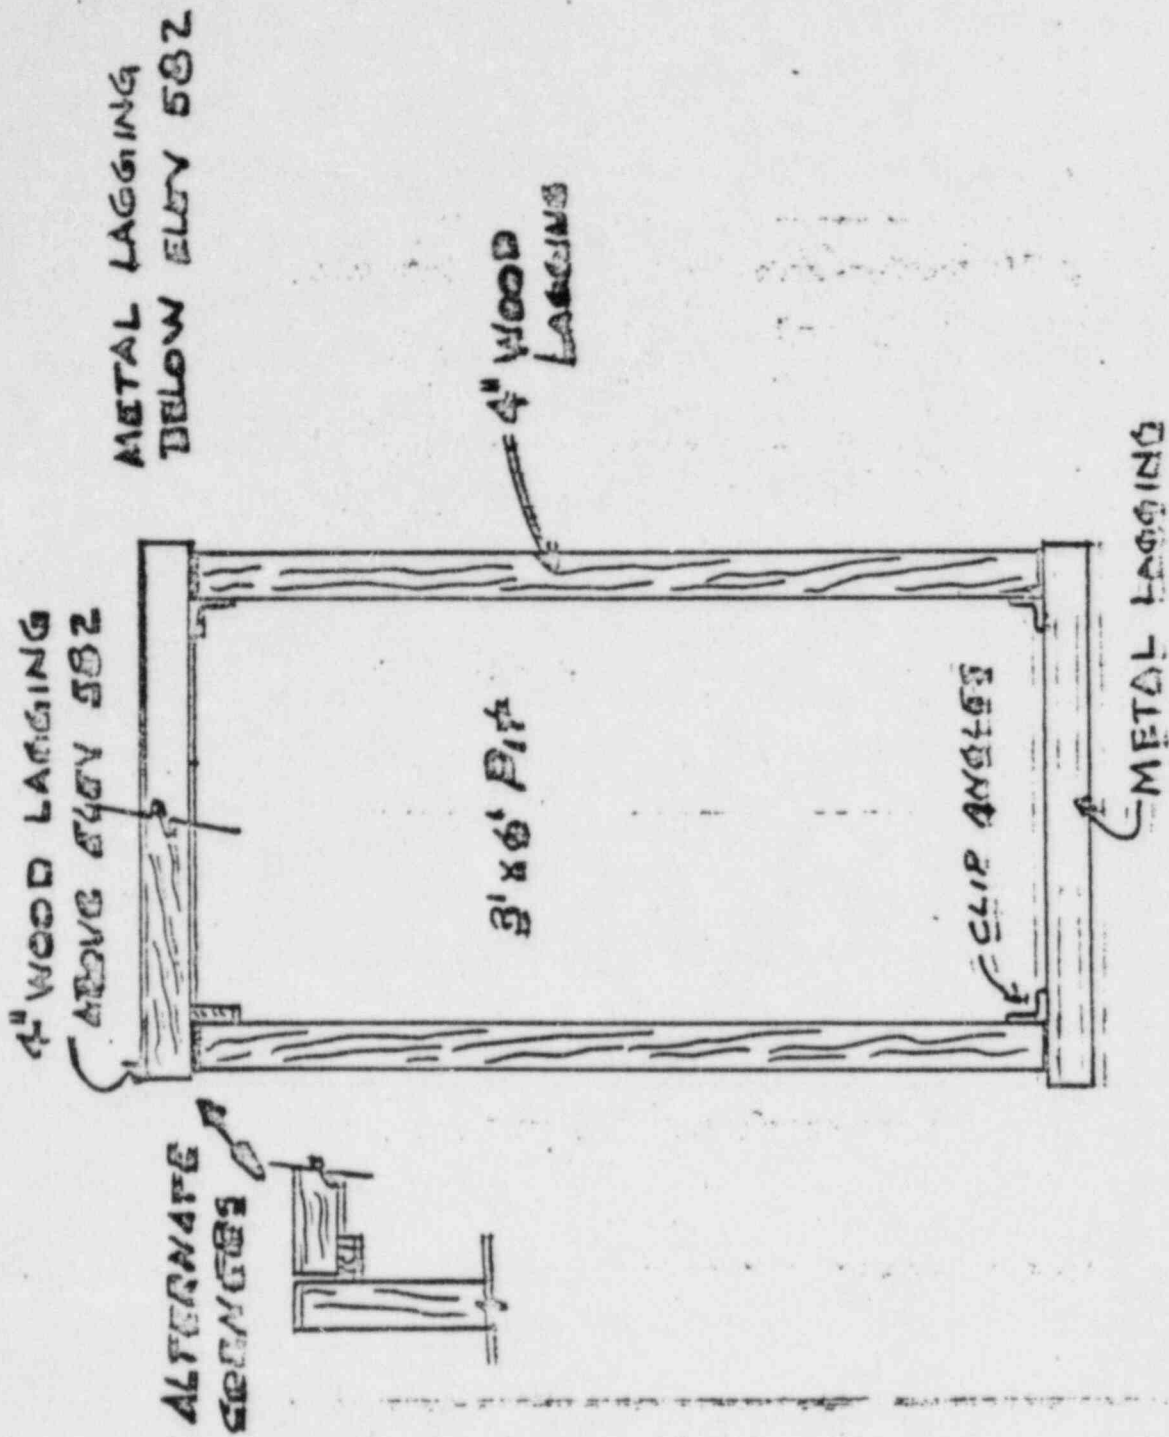 4" WOOD LAGGING
ABOVE ELEV 582
METAL LAGGING
BELOW ELEV 582
ALTERNATE
CORNERS
3' X 6' Pit
4" WOOD
LAGGING
CLIP ANGLES
METAL LAGGING